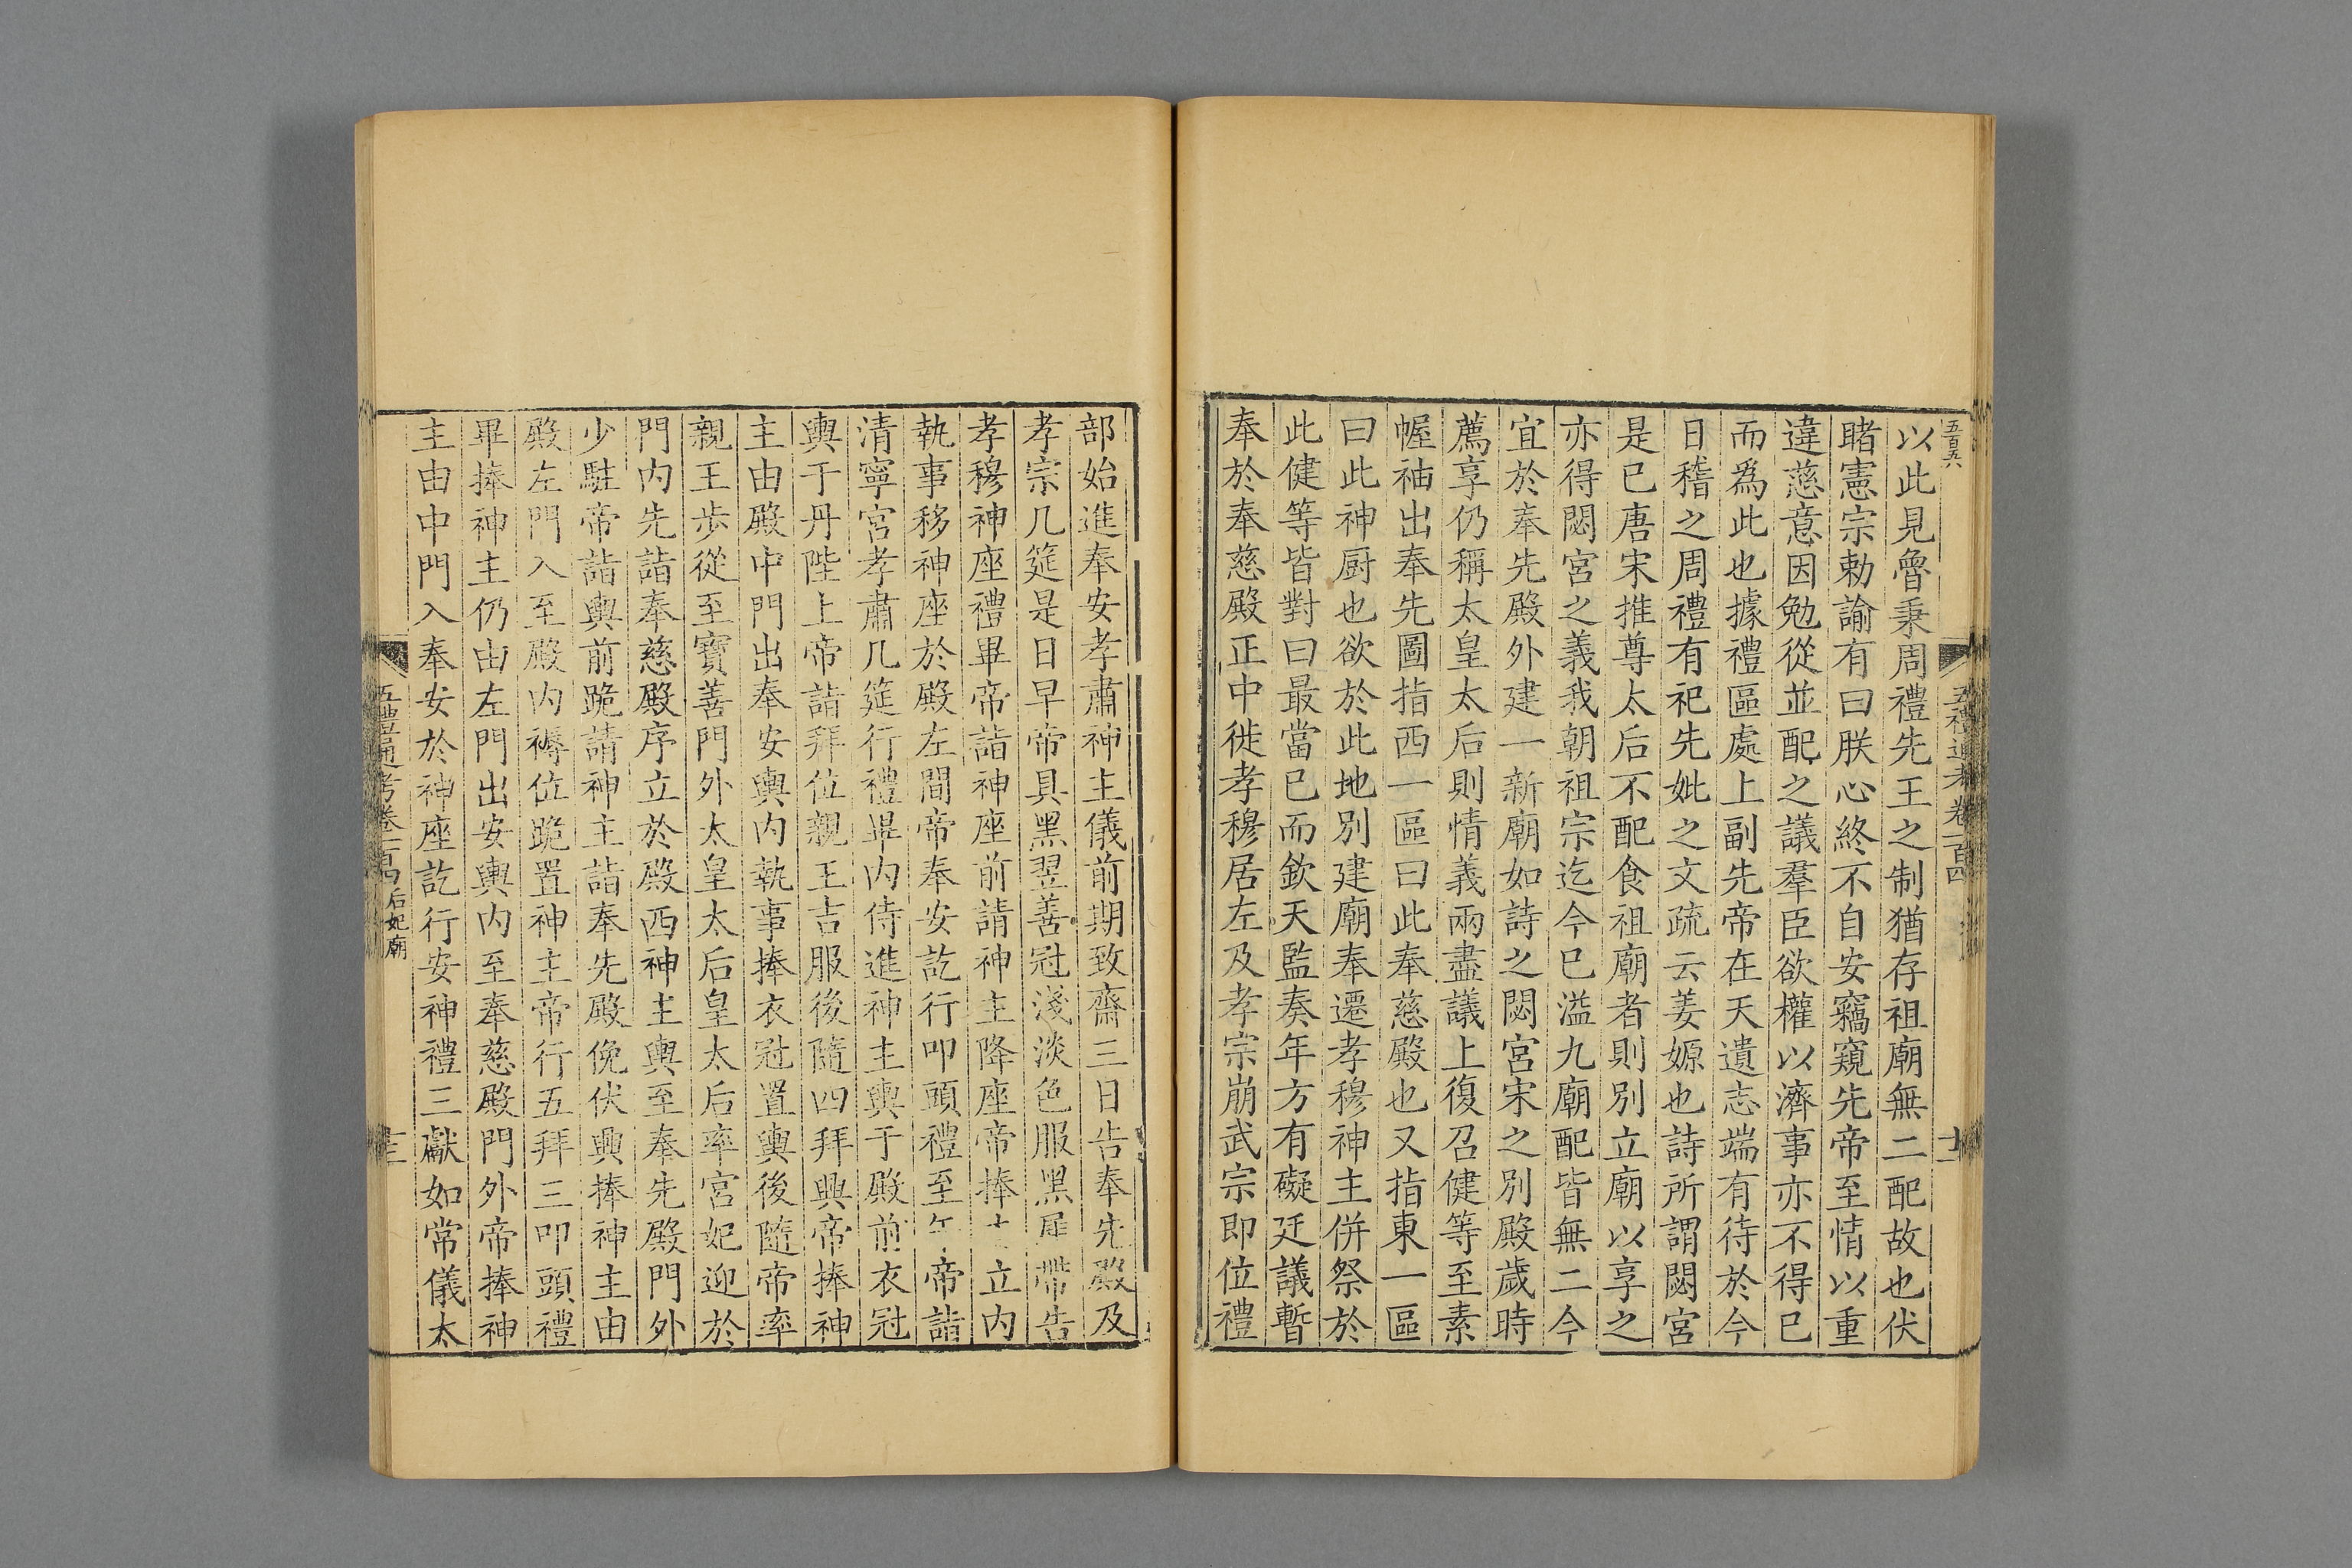 以此見魯秉周禮先王之制猶存祖廟無二配故也伏
睹憲宗勅諭有曰朕心終不自安竊窺先帝至情以重
違慈意因勉從並配之議羣臣欲權以濟事亦不得已
而爲此也據禮區處上副先帝在天遺志端有待於今
日稽之周禮有祀先妣之文疏云姜嫄也詩所謂閟宮
是已唐宋推尊太后不配食祖廟者則別立廟以享之
亦得閟宮之義我朝祖宗迄今已溢九廟配皆無二今
宜於奉先殿外建一新廟如詩之閟宮宋之別殿歲時
薦享仍稱太皇太后則情義兩盡議上復召健等至素
幄袖出奉先圖指西一區曰此奉慈殿也又指東一區
曰此神厨也欲於此地別建廟奉遷孝穆神主併祭於
此健等皆對曰最當已而欽天監奏年方有礙廷議暫
奉於奉慈殿正中徙孝穆居左及孝宗崩武宗即位禮
部始進奉安孝肅神主儀前期致齋三日告奉先殿及
孝宗几筵是日早帝具黑翌善冠淺淡色服黑犀帶告
孝穆神座禮畢帝詣神座前請神主降座帝捧立內
執事移神座於殿左間帝奉安訖行叩頭禮至午帝詣
清寧宮孝肅几筵行禮畢內侍進神主輿于殿前衣冠
輿于丹陛上帝詣拜位親王吉服後隨四拜興帝捧神
主由殿中門出奉安輿內執事捧衣冠置輿後隨帝率
親王步從至寶善門外太皇太后皇太后率宮妃迎於
門內先詣奉慈殿序立於殿西神主輿至奉先殿門外
少駐帝詣輿前跪請神主詣奉先殿俛伏興捧神主由
殿左門入至殿內褥位跪置神主帝行五拜三叩頭禮
畢捧神主仍由左門出安輿內至奉慈殿門外帝捧神
主由中門入奉安於神座訖行安神禮三獻如常儀太
五禮通考卷一百四 后妃廟